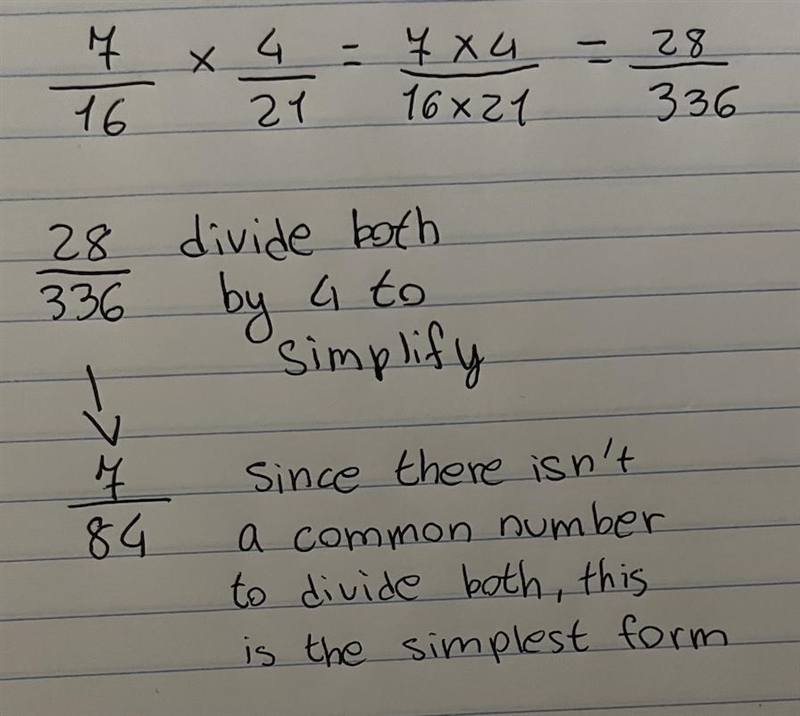 7/16 × 4/21 = 7 × 4/16 × 21 = 28/336
28/336 divide both
by 4 to
simplify
↓
7/84 Since there isn't
a common number
to divide both, this
is the simplest form